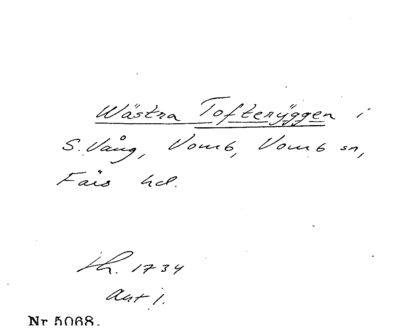 Wästra Tofteryggen i
S. Vång, Vomb, Vomb sn,
Färs hd.
Lh. 1734
Akt 1.
Nr 5068.